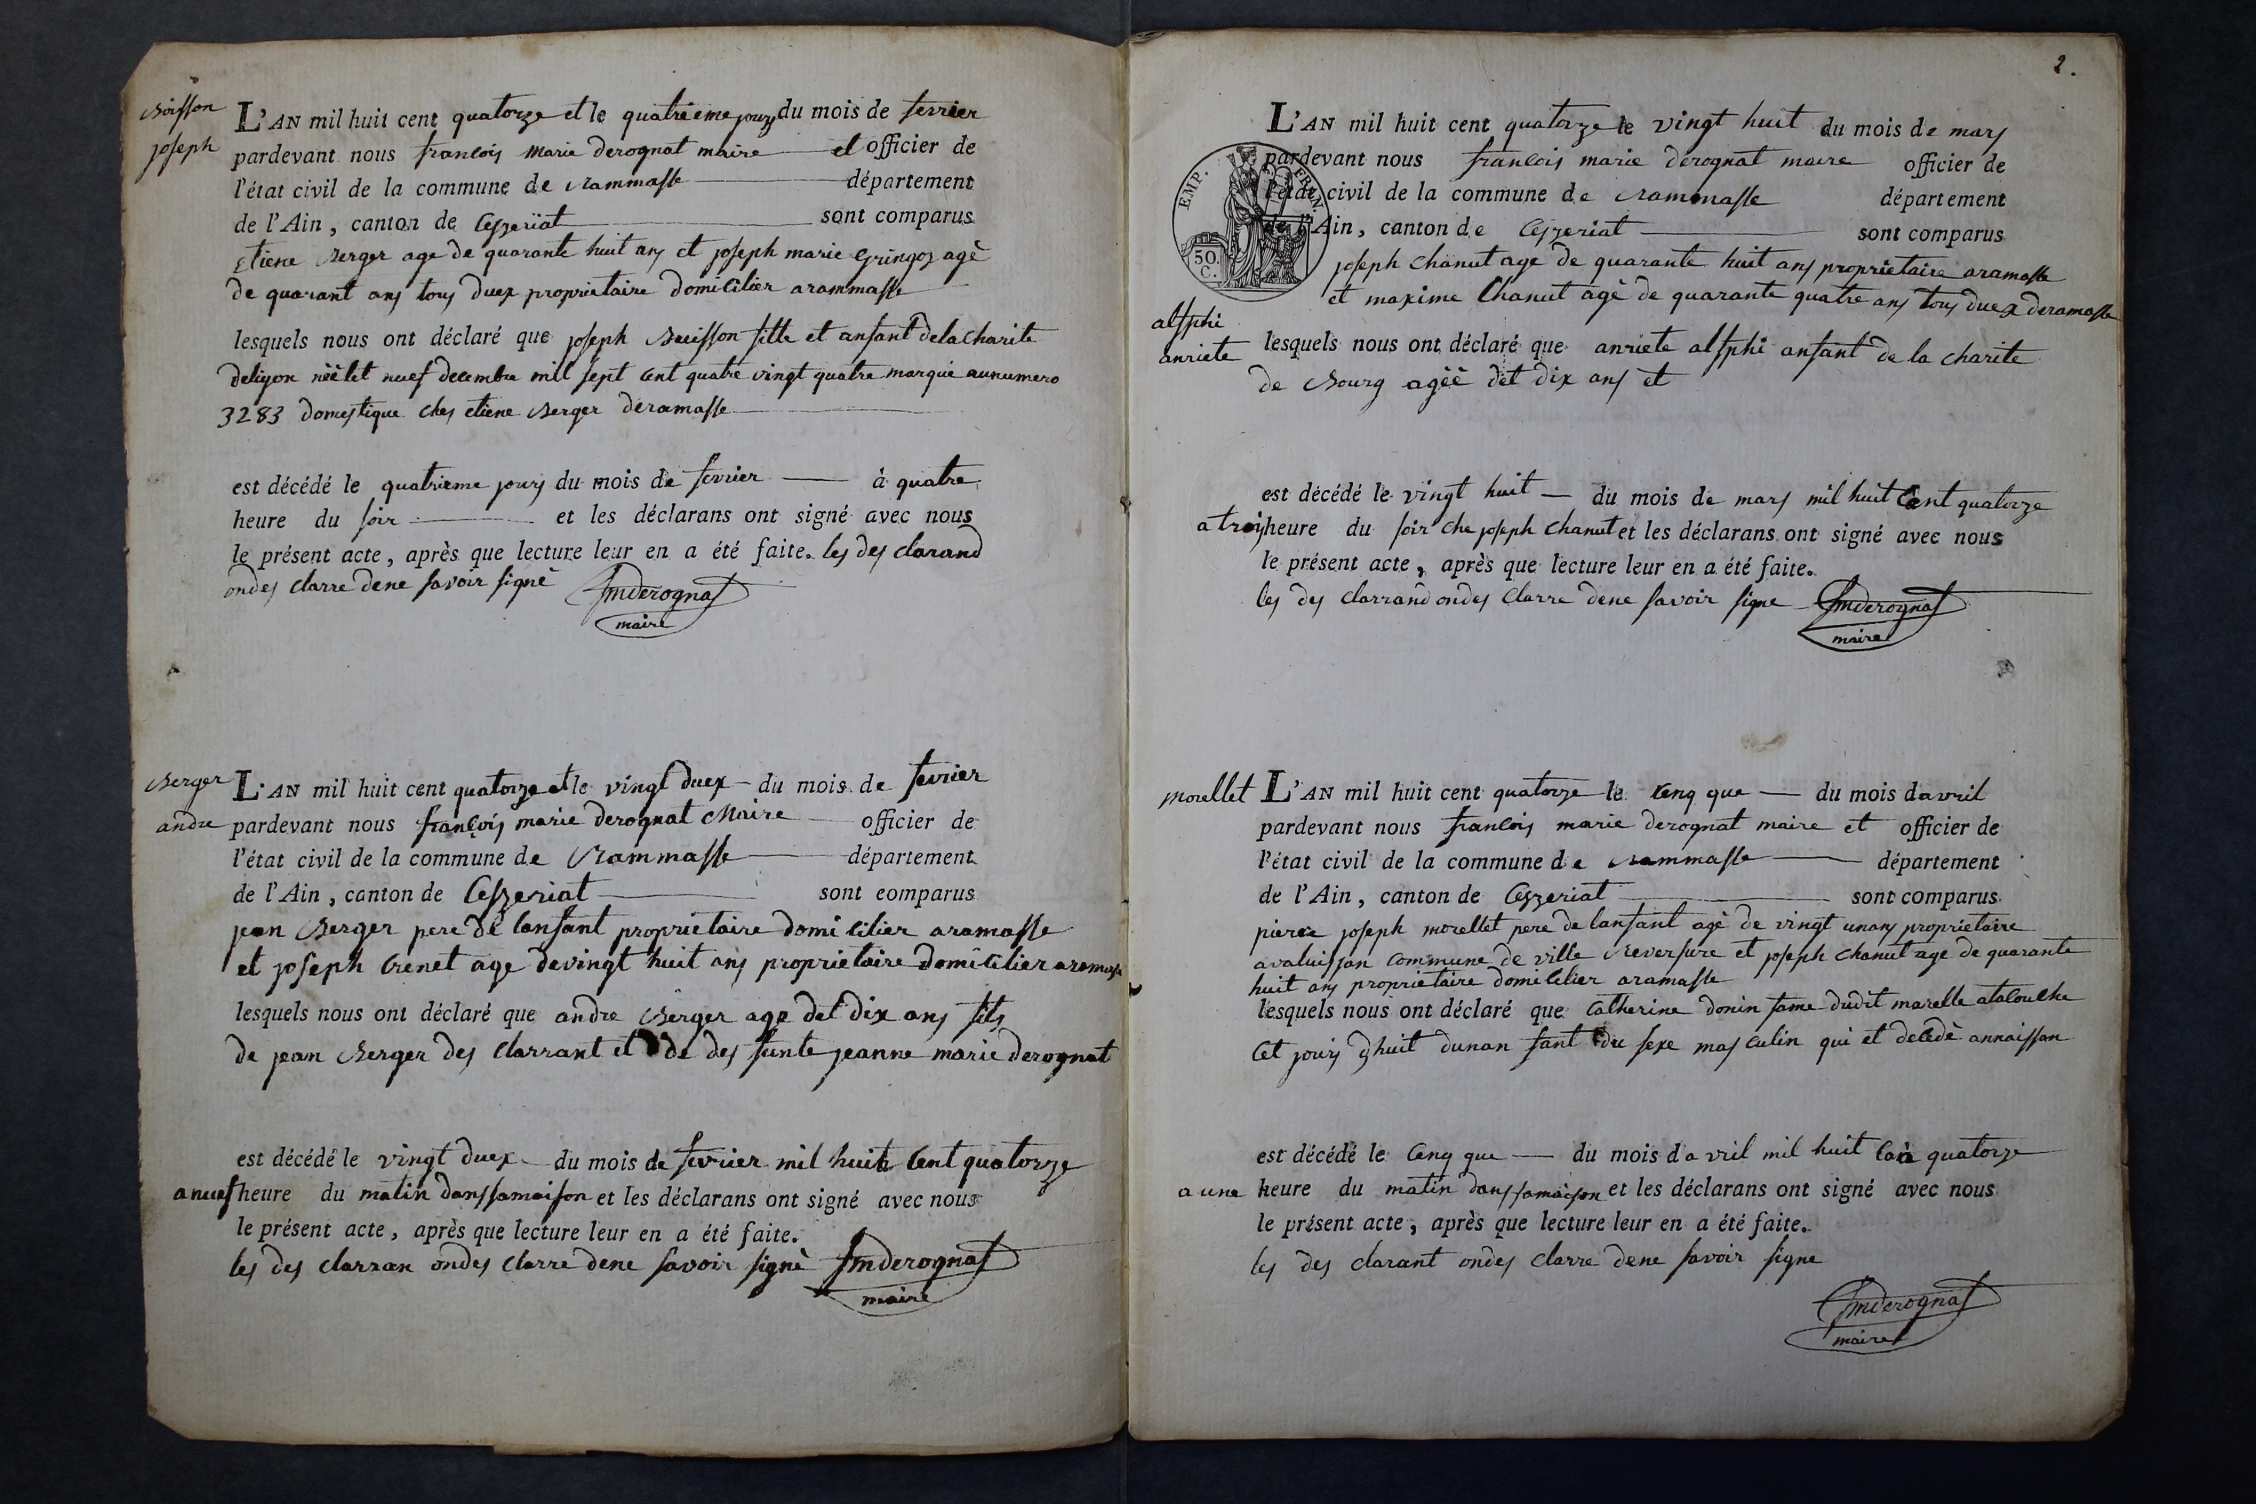 Boisson
joseph
L'AN mil huit cent quatorze et le quatrieme jours du mois de fevrier
pardevant nous francois marie derognat maire et officier de
l'état civil de la commune de Rammasse département
de l'Ain, canton de Ceyzeriat sont comparus
etiene Berger age de quarante huit ans et joseph marie Gringoz agè
de quarant ans tous duex proprietaire domicilier arammasse
lesquels nous ont déclaré que joseph Buisson fille et anfant dela charite
deliyon néé let nuef decembre mill sept cent quatre vingt quatre marquè aunumero
3283 domestique ches etiene Berger deramasse
est décédé le quatrieme jours du mois de fevrier à quatre
heure du soir et les déclarans ont signé avec nous
le présent acte, après que lecture leur en a été faite. les des clarand
ondes clarre dene savoir signè fmderognat
maire
Berger
andre
L'AN mil huit cent quatorze et le vingt duex du mois de fevrier
pardevant nous françois marie derognat Maire officier de
l'état civil de la commune de Rammasse département
de l'Ain, canton de Ceyzeriat sont comparus
jean Berger pere de lanfant proprietaire domicilier aramasse
et joseph Crenet age devingt huit ans proprietaire domicilier aramasse
lesquels nous ont déclaré que andre Berger age det dix ans fils
de jean Berger des clarrant et de des funte jeanne marie derognat
est décédé le vingt duex du mois de fevrier mil huit cent quatorze
a nuef heure du matin dans samaison et les déclarans ont signé avec nous
le présent acte, après que lecture leur en a été faite.
les des clarran ondes clarre dene savoir signè fmderognat
maire
2.
EMP. FRAN.
50.
C.
L'AN mil huit cent quatorze le vingt huit du mois de mars
pardevant nous francois marie derognat maire officier de
l'état civil de la commune de Rammasse département
de l'Ain, canton de Ceyzeriat sont comparus
joseph chanut age de quarante huit ans proprietaire aramasse
et maxime Chanut agè de quarante quatre ans tous duex deramasse
alfphi
anriete
lesquels nous ont déclaré que anriete alfphi anfant de la charite
de Bourg agéé det dix ans et
est décédé le vingt huit du mois de mars mil huit Cent quatorze
a trois heure du soir che joseph chanut et les déclarans ont signé avec nous
le présent acte, après que lecture leur en a été faite.
les des clarrand ondes clarre dene savoir signe fmderognat
maire
morellet
L'AN mil huit cent quatorze le cenq que du mois davril
pardevant nous francois marie derognat maire et officier de
l'état civil de la commune de Rammasse département
de l'Ain, canton de Ceyzeriat sont comparus
pierre joseph morellet pere de lanfant agè de vingt unans proprietaire
avaluisson commune de ville Reversure et joseph chanut age de quarante
huit ans proprietaire domicilier aramasse
lesquels nous ont déclaré que Catherine donin fame dudit marelle atalouche
Cet jours dhuit dunan fant du sexe mas culin qui et decedè annaissan
est décédé le cenq que du mois davril mil huit quatorze
a une heure du matin dans samaison et les déclarans ont signé avec nous
le présent acte, après que lecture leur en a été faite.
les des clarant ondes clarre dene savoir signe
fmderognat
maire